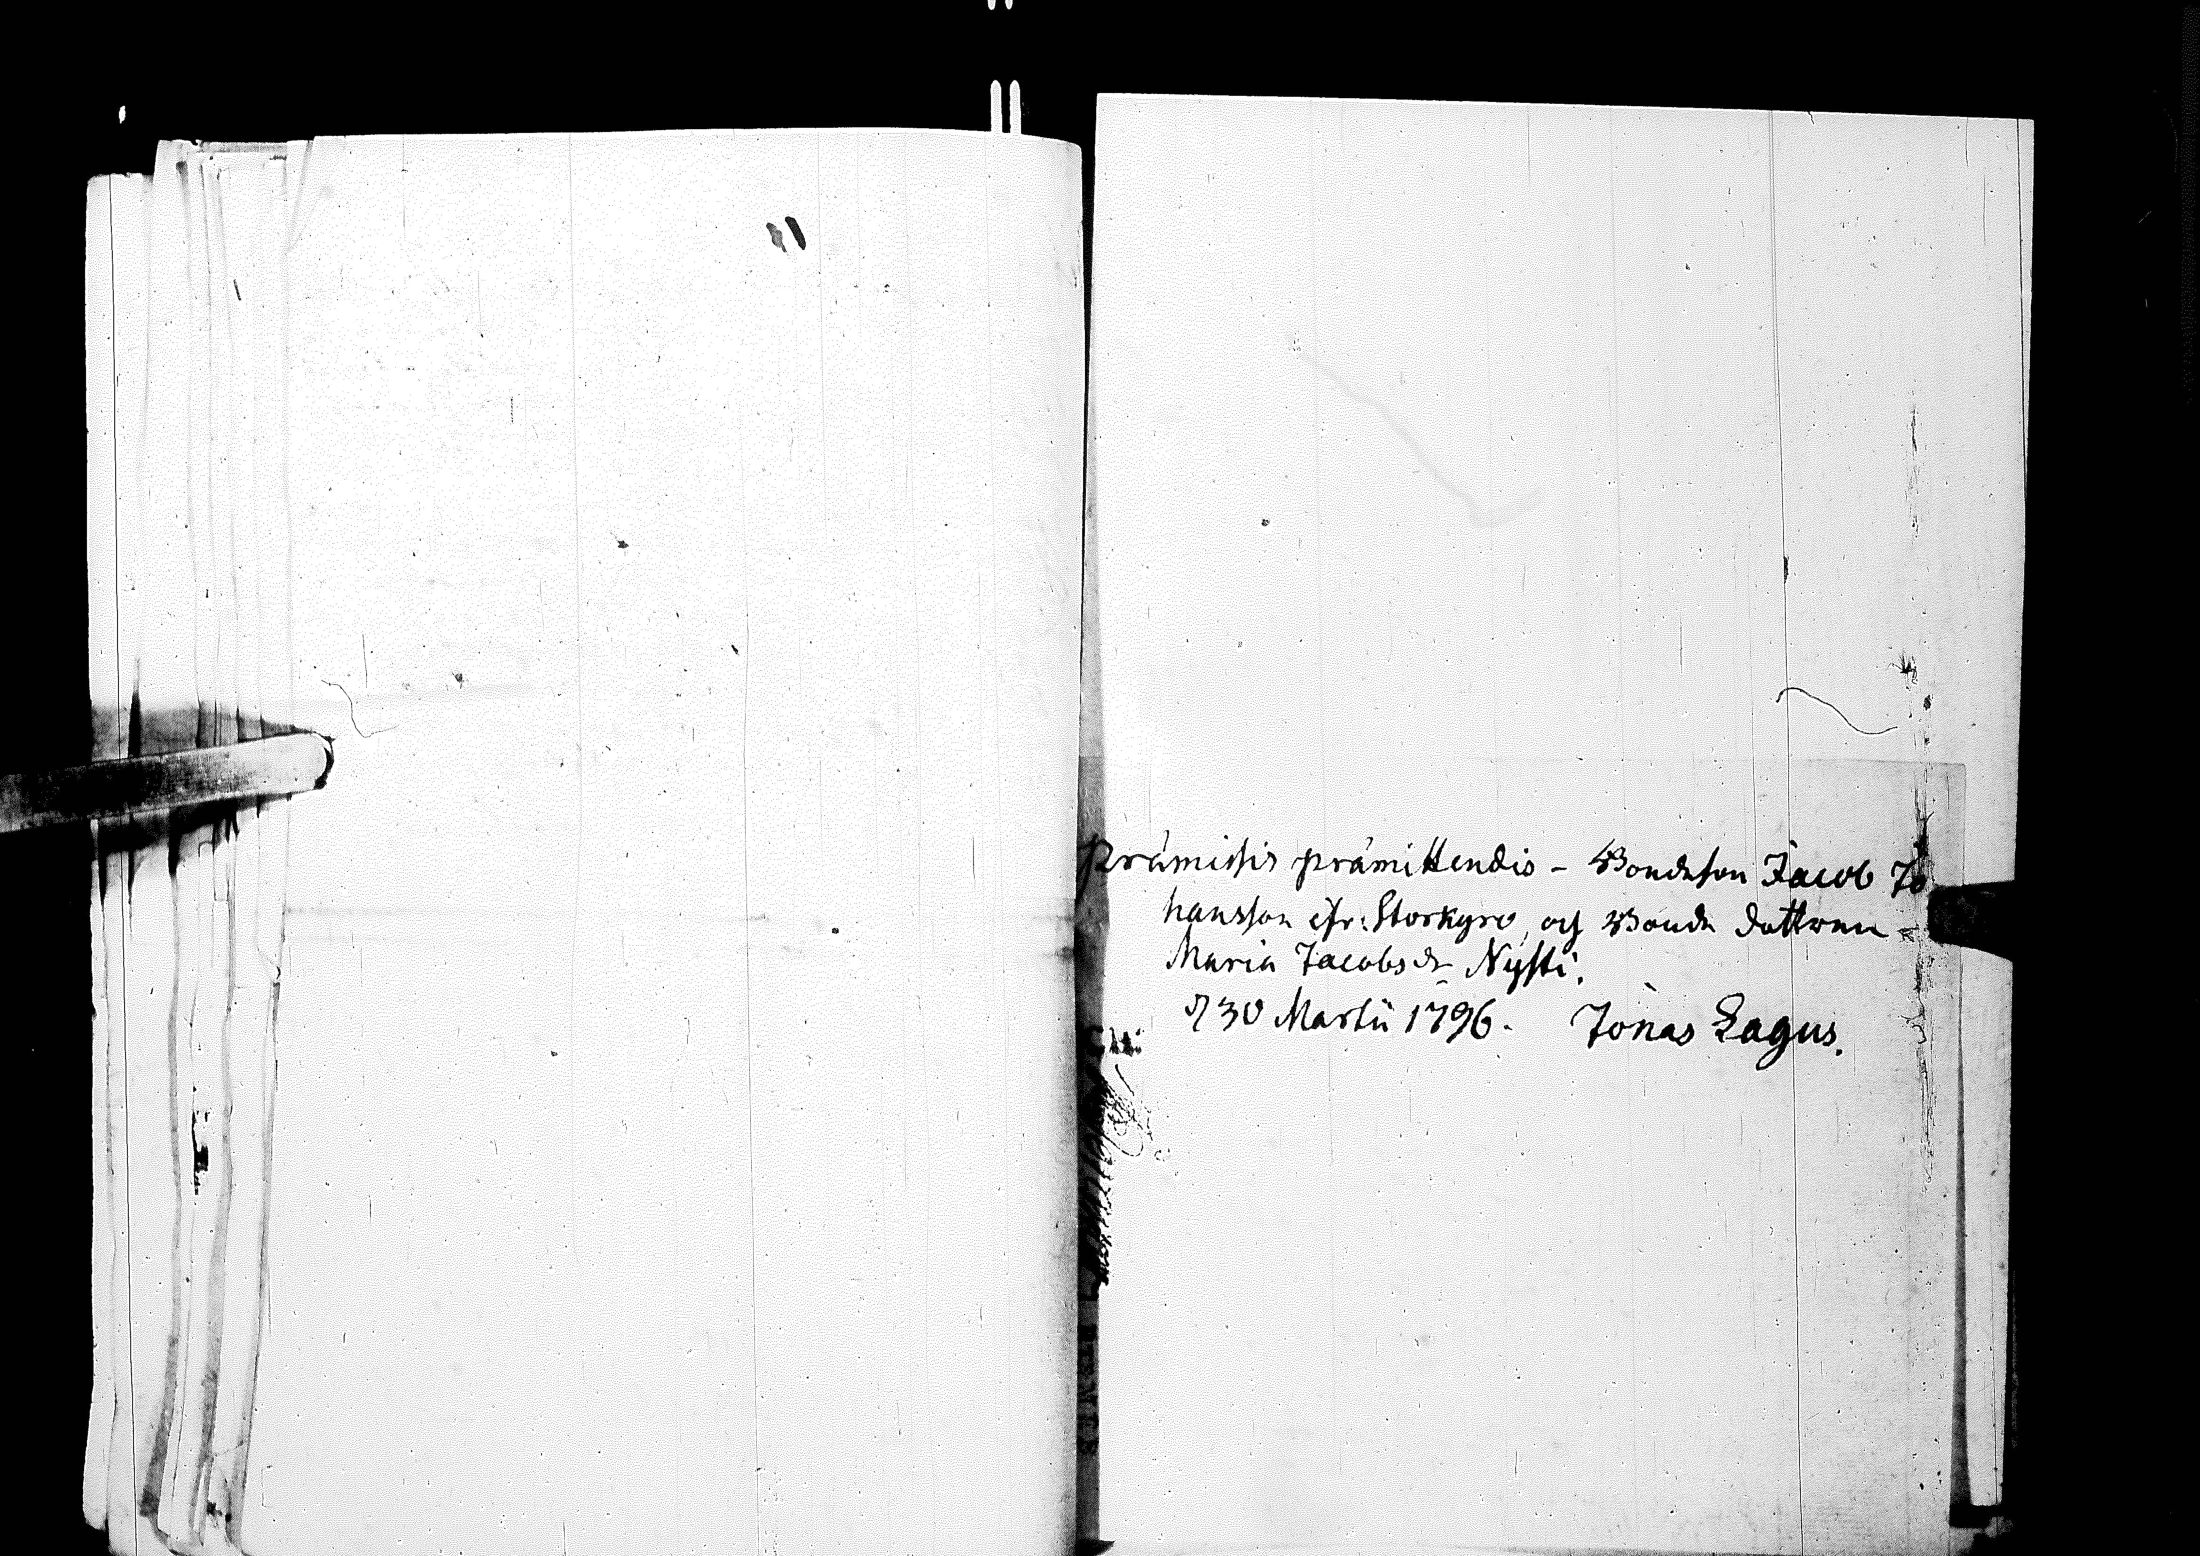 Præmissis præmittendis - Bondeson Jacob Jo
hansson ifr: Storkyro, och Bonde dottren
Maria Jacobsdr Nysti.
d 30 Martii 1796. Jonas Lagus.